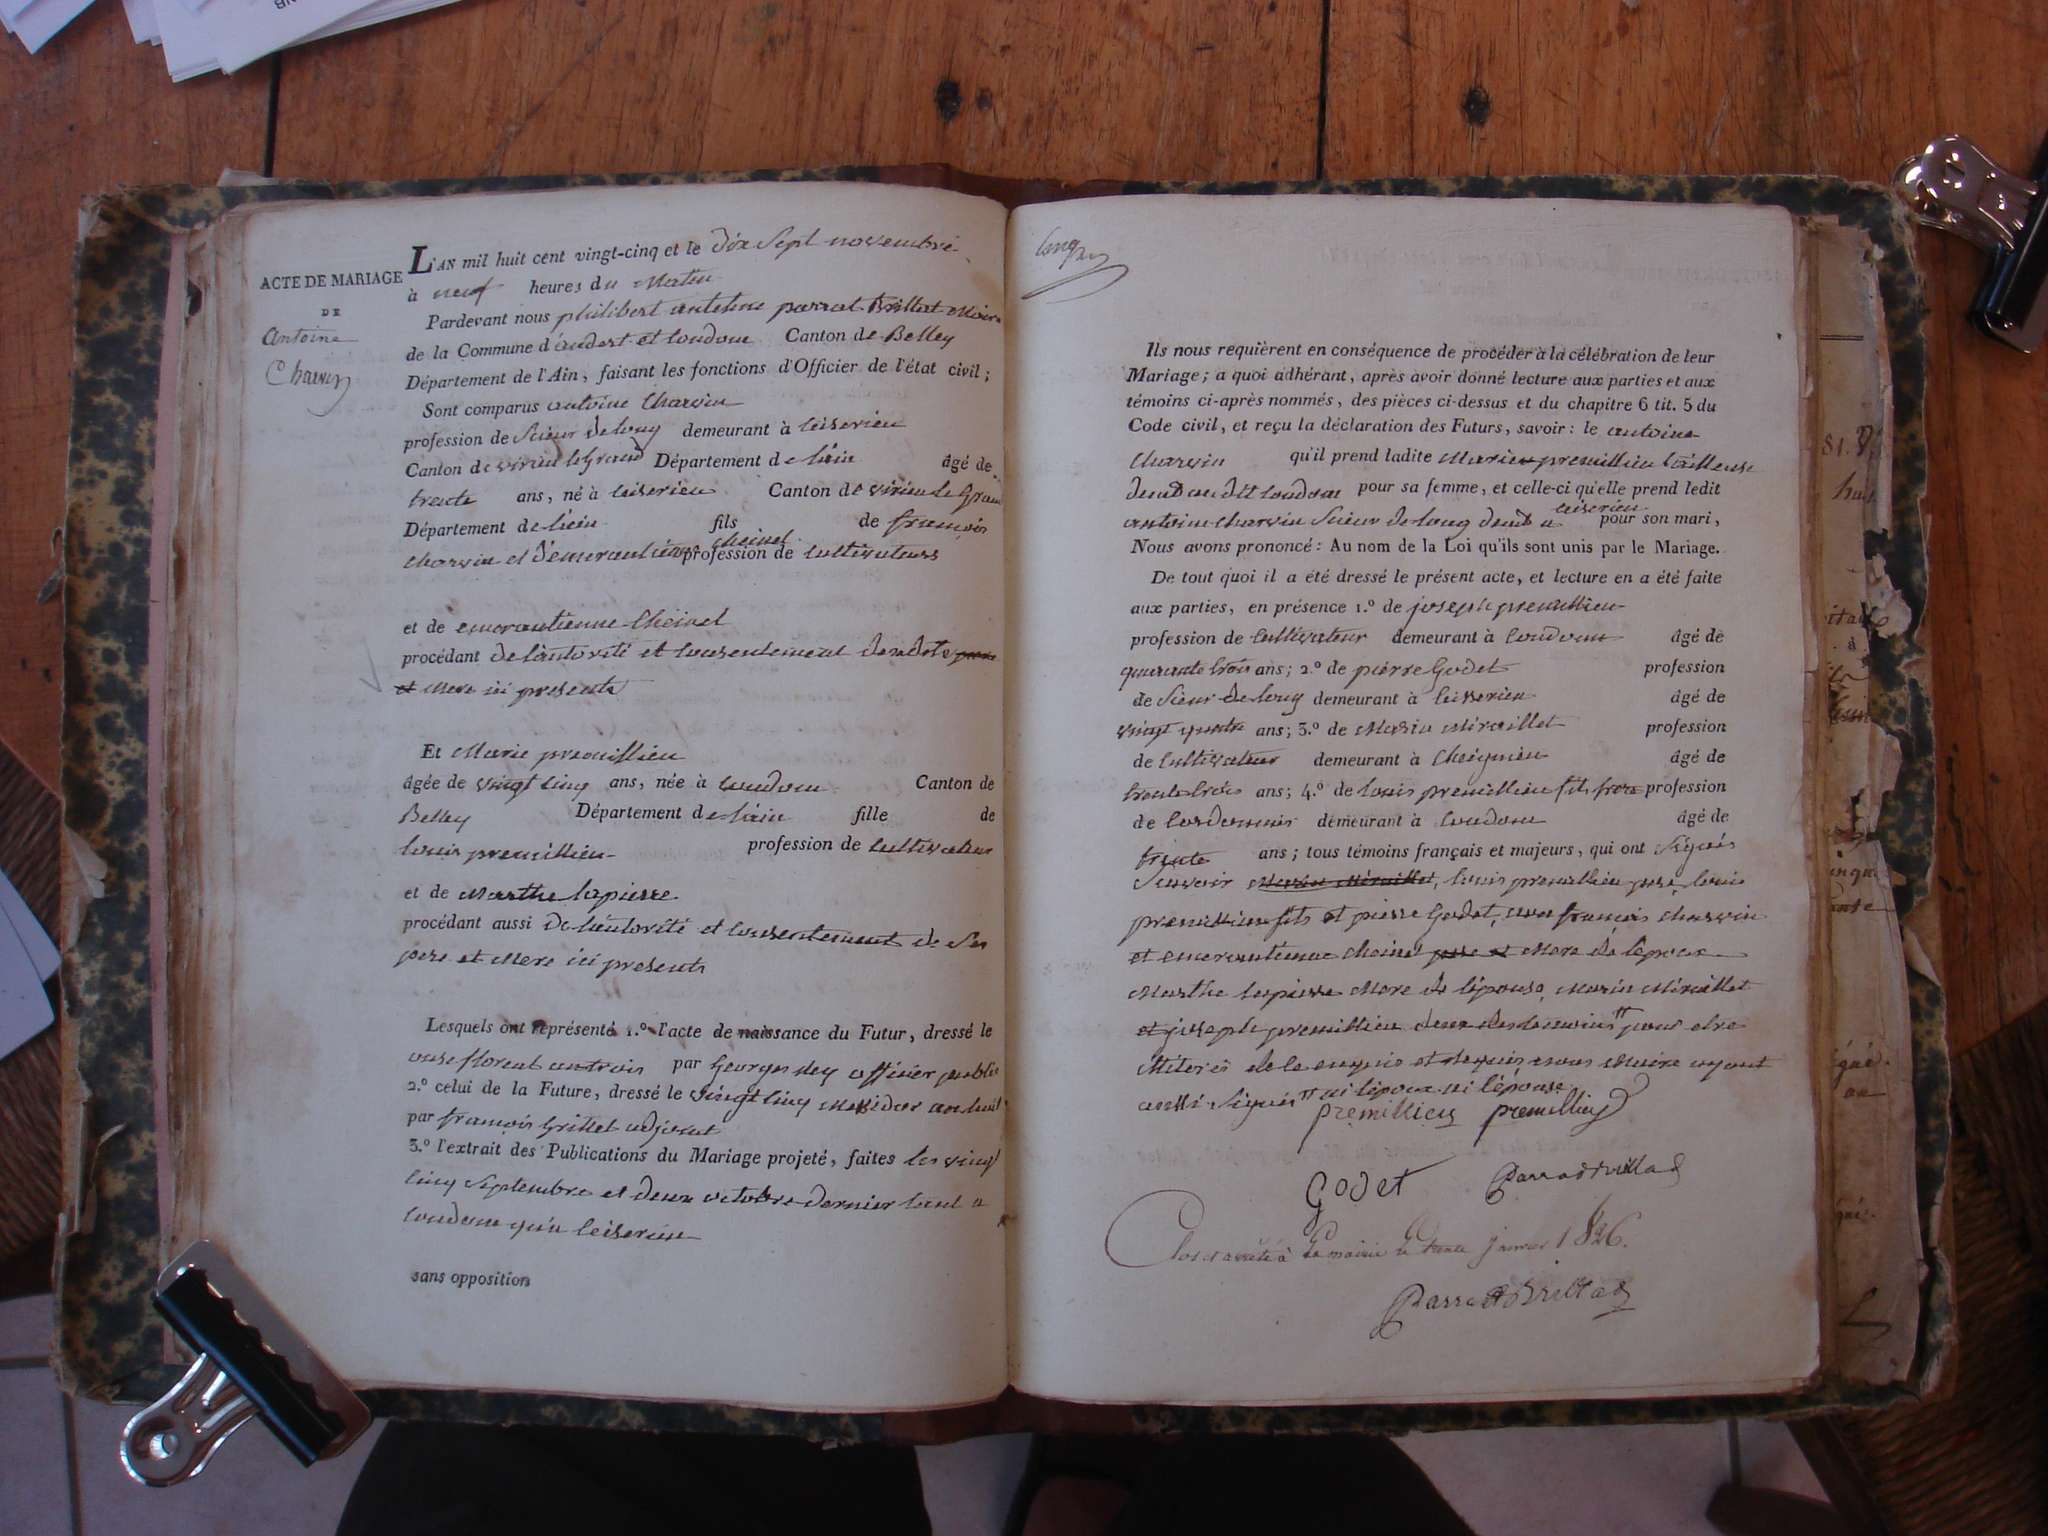 ACTE DE MARIAGE
DE
Antoine
Charvin
L'AN mil huit cent vingt-cinq et le dix sept novembre
à neuf heures du Matin
Pardevant nous philibert antelme parrat Brillat Maire
de la Commune d'andert et Condom Canton de Belley
Département de l'Ain, faisant les fonctions d'Officier de l'état civil;
Sont comparus antoine Charvin
profession de Scieur de long demeurant à ceiserieu
Canton de virieu le Grand Département de l'ain âgé de
trente ans, né à ceiserieu Canton de virieu le Grand
Département de l'ain fils de françois
charvin et d'emerantienne cheinel profession de cultivateurs
et de emerantienne Cheinel
procédant de l'autorité et consentement de sa dete père
et Mere ici presents
Et Marie premillieu
âgée de vingt cinq ans, née à condom Canton de
Belley Département de l'ain fille de
louis premillieu profession de cultivateur
et de Marthe lapierre
procédant aussi de l'autorité et consentement de Ses
pere et Mere ici presents
Lesquels ont représenté 1.º l'acte de naissance du Futur, dressé le
onse floreal an trois par Georges ney officier public
2.º celui de la Future, dressé le vingt cinq Messidor an huit
par françois Grillet adjoint
3.º l'extrait des Publications du Mariage projeté, faites les vingt
cinq Septembre et deux octobre dernier tant a
condom qu'a ceiserieu
sans opposition
Ils nous requièrent en conséquence de procéder à la célébration de leur
Mariage; a quoi adhérant, après avoir donné lecture aux parties et aux
témoins ci-après nommés, des pièces ci-dessus et du chapitre 6 tit. 5 du
Code civil, et reçu la déclaration des Futurs, savoir: le antoine
Charvin qu'il prend ladite Marie premillieu tailleuse
demt au dit condom pour sa femme, et celle-ci qu'elle prend ledit
antoine charvin Scieur de long demt a ceiserieu pour son mari,
Nous avons prononcé: Au nom de la Loi qu'ils sont unis par le Mariage.
De tout quoi il a été dressé le présent acte, et lecture en a été faite
aux parties, en présence 1.º de joseph premillieu
profession de cultivateur demeurant à condom âgé de
quarante trois ans; 2.º de pierre Godet profession
de Sieur de long demeurant à ceisserieu âgé de
vingt quatre ans; 3.º de Marin Miraillet profession
de cultivateur demeurant à Cheignieu âgé de
trente trois ans; 4.º de louis premillieu fils frere profession
de Cordonnier demeurant à condom âgé de
trente ans; tous témoins français et majeurs, qui ont Signés
Sauvoir Marin Miraillet, louis premillieu pere, louis
premillieu fils et pierre Godet, non françois charvin
et emerantienne cheinel pere et Mere de l'epoux
Marthe lapierre Mere de l'épouse, Marin Miraillet
et joseph premillieu deux des temoins pour etre
illiterés de le enquis et requis nous Maire ayant
aussi Signés ni l'epoux ni l'épouse
premillieu premillieu
Godet Parrat Brillat
Clos et arrêté à la mairie le trente Janvier 1826.
Parrat Brillat